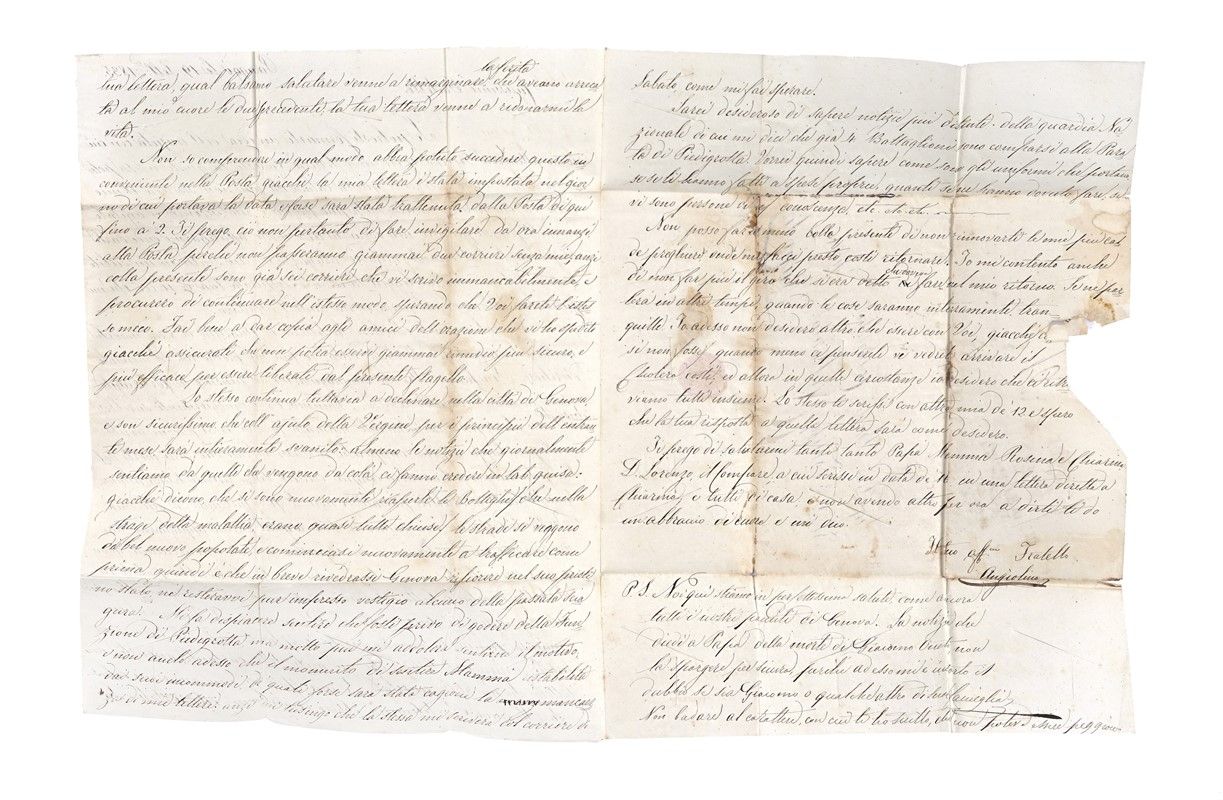 la ferita
tua lettera, qual balsamo salutare venne a rimarginare che aveano arreca
ta al mio cuore le due precedenti, la tua lettera venne a ridonarmi la
vita.
Non so comprendere in qual modo abbia potuto succedere questo in
conveniente nella Posta giacché la mia lettera è stata impostata nel gior
no di cui portava la data e forse sarà stata trattenuta dalla Posta di qui
fino a 2. Ti prego, ciò non pertanto, di fare invigilare da ora innanzi
alla Posta, perché non passeranno giammai due corrieri senza mie, anzi
colla presente sono già sei corrieri che vi scrivo immancabilmente, e
procurerò di continuare nell'istesso modo, sperando che Voi farete l'istes
so meco. Fai bene a dar copia agli amici dell'orazione che vi ho spedito
giacché assicurali che non potrà esservi giammai rimedio più sicuro, e
più efficace per essere liberati dal presente flagello.
Lo stesso continua tuttavia a declinare nella città di Genova
e son sicurissimo che coll'ajuto della Vergine per i principii dell'entran
te mese sarà intieramente svanito: almeno le notizie che giornalmente
sentiamo da quelli che vengono da colà ci fanno credere in tal guisa:
giacché dicono, che si sono nuovamente riaperte le Botteghe che nella
strage della malattia, erano quasi tutte chiuse, le strade si veggono
di bel nuovo popolate e cominciasi nuovamente a trafficare come
prima, quindi è che in breve rivedrassi Genova rifiorire nel suo pristi
no stato, nè resteravvi pur impresso vestigio alcuno della passata scia
gura. Mi fa dispiacere sentire che foste privo di godere della Fun
zione di Piedigrotta ma molto più mi addolora sentirne il motivo,
e non anelo adesso che il momento di sentire Mammà ristabilita
dai suoi incommodi, di quale forse sarà stata cagione la mancan
za di mie lettere: anzi mi lusingo che la stessa mi scriverà col corriere di
Saluto, come mi fai sperare.
Sarei desideroso di sapere notizie più distinte della guardia Na
zionale di cui mi dici che già 4 Battaglioni sono comparsi alla Para
ta di Piedigrotta. Vorrei quindi sapere come sono gli uniformi che portano
se se li hanno fatti a spese proprie, quanti se ne hanno dovuto fare, se
vi sono persone di conoscenza, etc. etc. etc.
Non posso fare a meno colla presente di non rinnovarti le mie più cal
de preghiere onde mi facci presto costì ritornare. Io mi contento anche
di non far più il giro che si era detto di farsi nel mio ritorno. Se ne par
lerà in altro tempo, quando le cose saranno interamente tran-
quille. Io adesso non desidero altro che essere con Voi, giacché
si non fosse, quando meno ci penserete vi vedrete arrivare il
Cholera costì, ed allora in quelle circostanze io desidero che ci ritro
viamo tutti insieme. Lo stesso ti scrissi con altra mia de' 12 e spero
che la tua risposta a quella lettera sarà come desidero.
Ti prego di salutarmi tanto tanto Papà Mammà Rosina e Chiarina
D. Lorenzo, il Compare a cui scrissi in data de' 16 in una lettera diretta a
Chiarina, e tutti di casa e non avendo altro per ora a dirti ti do
un abbraccio di cuore e mi dico.
Il tuo aff.mo Fratello
Angiolino
P.S. Noi qui stiamo in perfettissima salute, come ancora
tutti i nostri parenti di Genova. La notizia che
diedi a Papà della morte di Giacomo Oneto non
la spargere per sicura, perché adesso mi è incerto il
dubbio se sia Giacomo o qualche altro di sua famiglia.
Non badare al carattere, con cui ti ho scritto, che non poteva esser peggiore